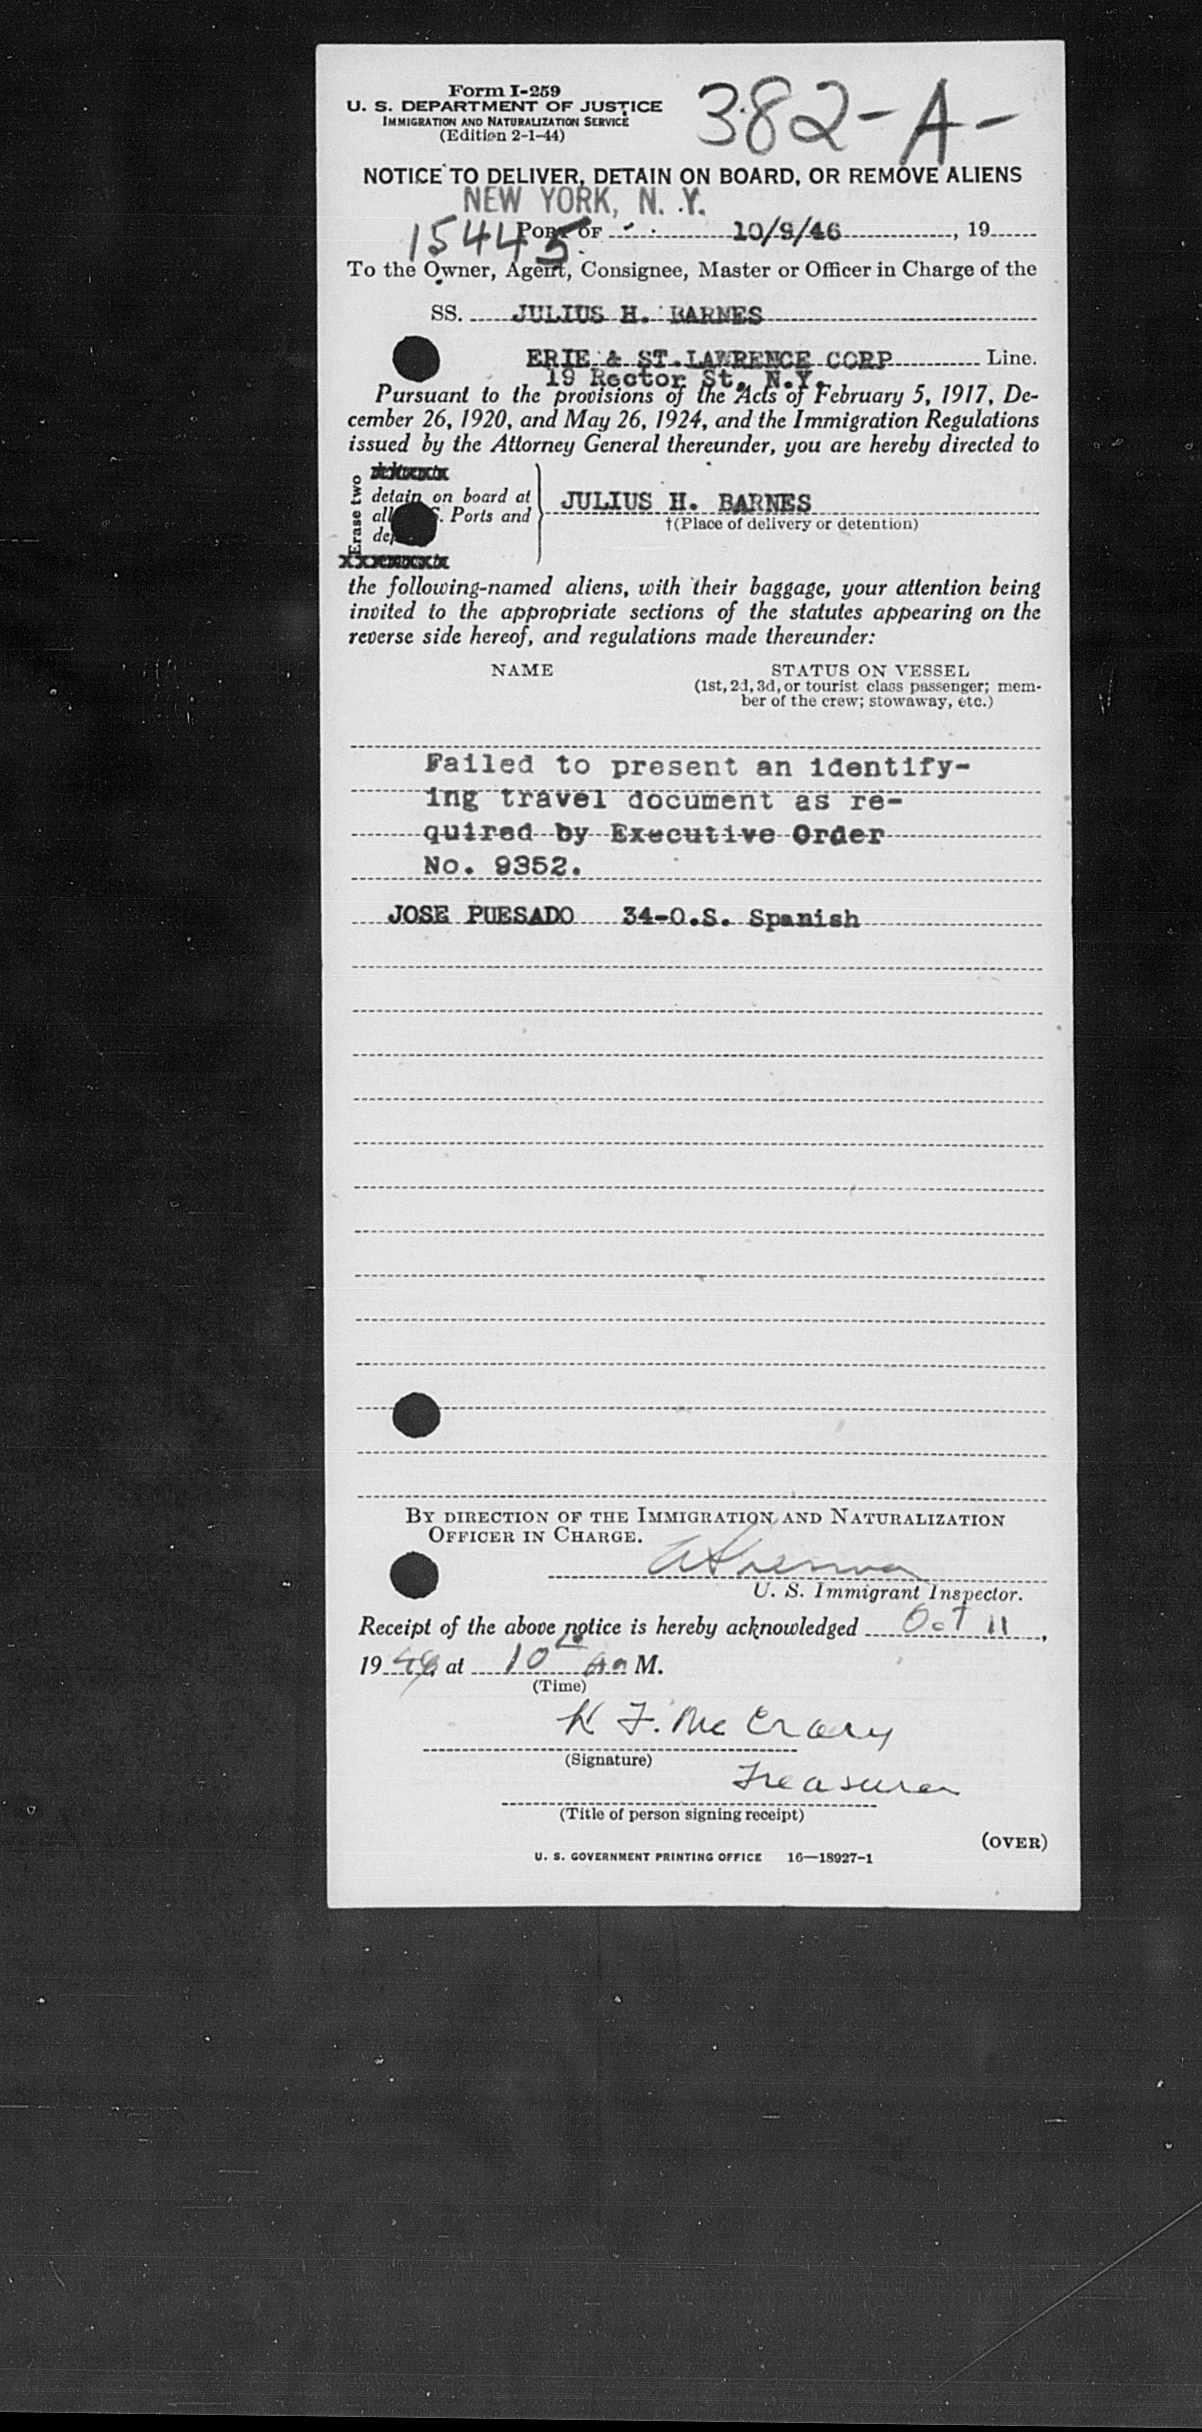 Form I-259
U. S. DEPARTMENT OF JUSTICE
IMMIGRATION AND NATURALIZATION SERVICE
(Edition 2-1-44)
382-A-
NOTICE TO DELIVER, DETAIN ON BOARD, OR REMOVE ALIENS
NEW YORK, N. Y.
15445
PORT OF 10/9/46, 19
To the Owner, Agent, Consignee, Master or Officer in Charge of the
SS. JULIUS H. BARNES
ERIE & ST.LAWRENCE CORP Line.
19 Rector St. N.Y.
Pursuant to the provisions of the Acts of February 5, 1917, De-
cember 26, 1920, and May 26, 1924, and the Immigration Regulations
issued by the Attorney General thereunder, you are hereby directed to
Erase two
detain on board at
all S. Ports and
JULIUS H. BARNES
†(Place of delivery or detention)
the following-named aliens, with their baggage, your attention being
invited to the appropriate sections of the statutes appearing on the
reverse side hereof, and regulations made thereunder:
NAME STATUS ON VESSEL
(1st, 2d, 3d, or tourist class passenger; mem-
ber of the crew; stowaway, etc.)
Failed to present an identify-
ing travel document as re-
quired by Executive Order
No. 9352.
JOSE PUESADO 34-O.S. Spanish
BY DIRECTION OF THE IMMIGRATION AND NATURALIZATION
OFFICER IN CHARGE.
U. S. Immigrant Inspector.
Receipt of the above notice is hereby acknowledged Oct 11,
19 46, at 10 AM M.
(Time)
K F. McCrary
(Signature)
Treasurer
(Title of person signing receipt)
(OVER)
U. S. GOVERNMENT PRINTING OFFICE 16—18927-1